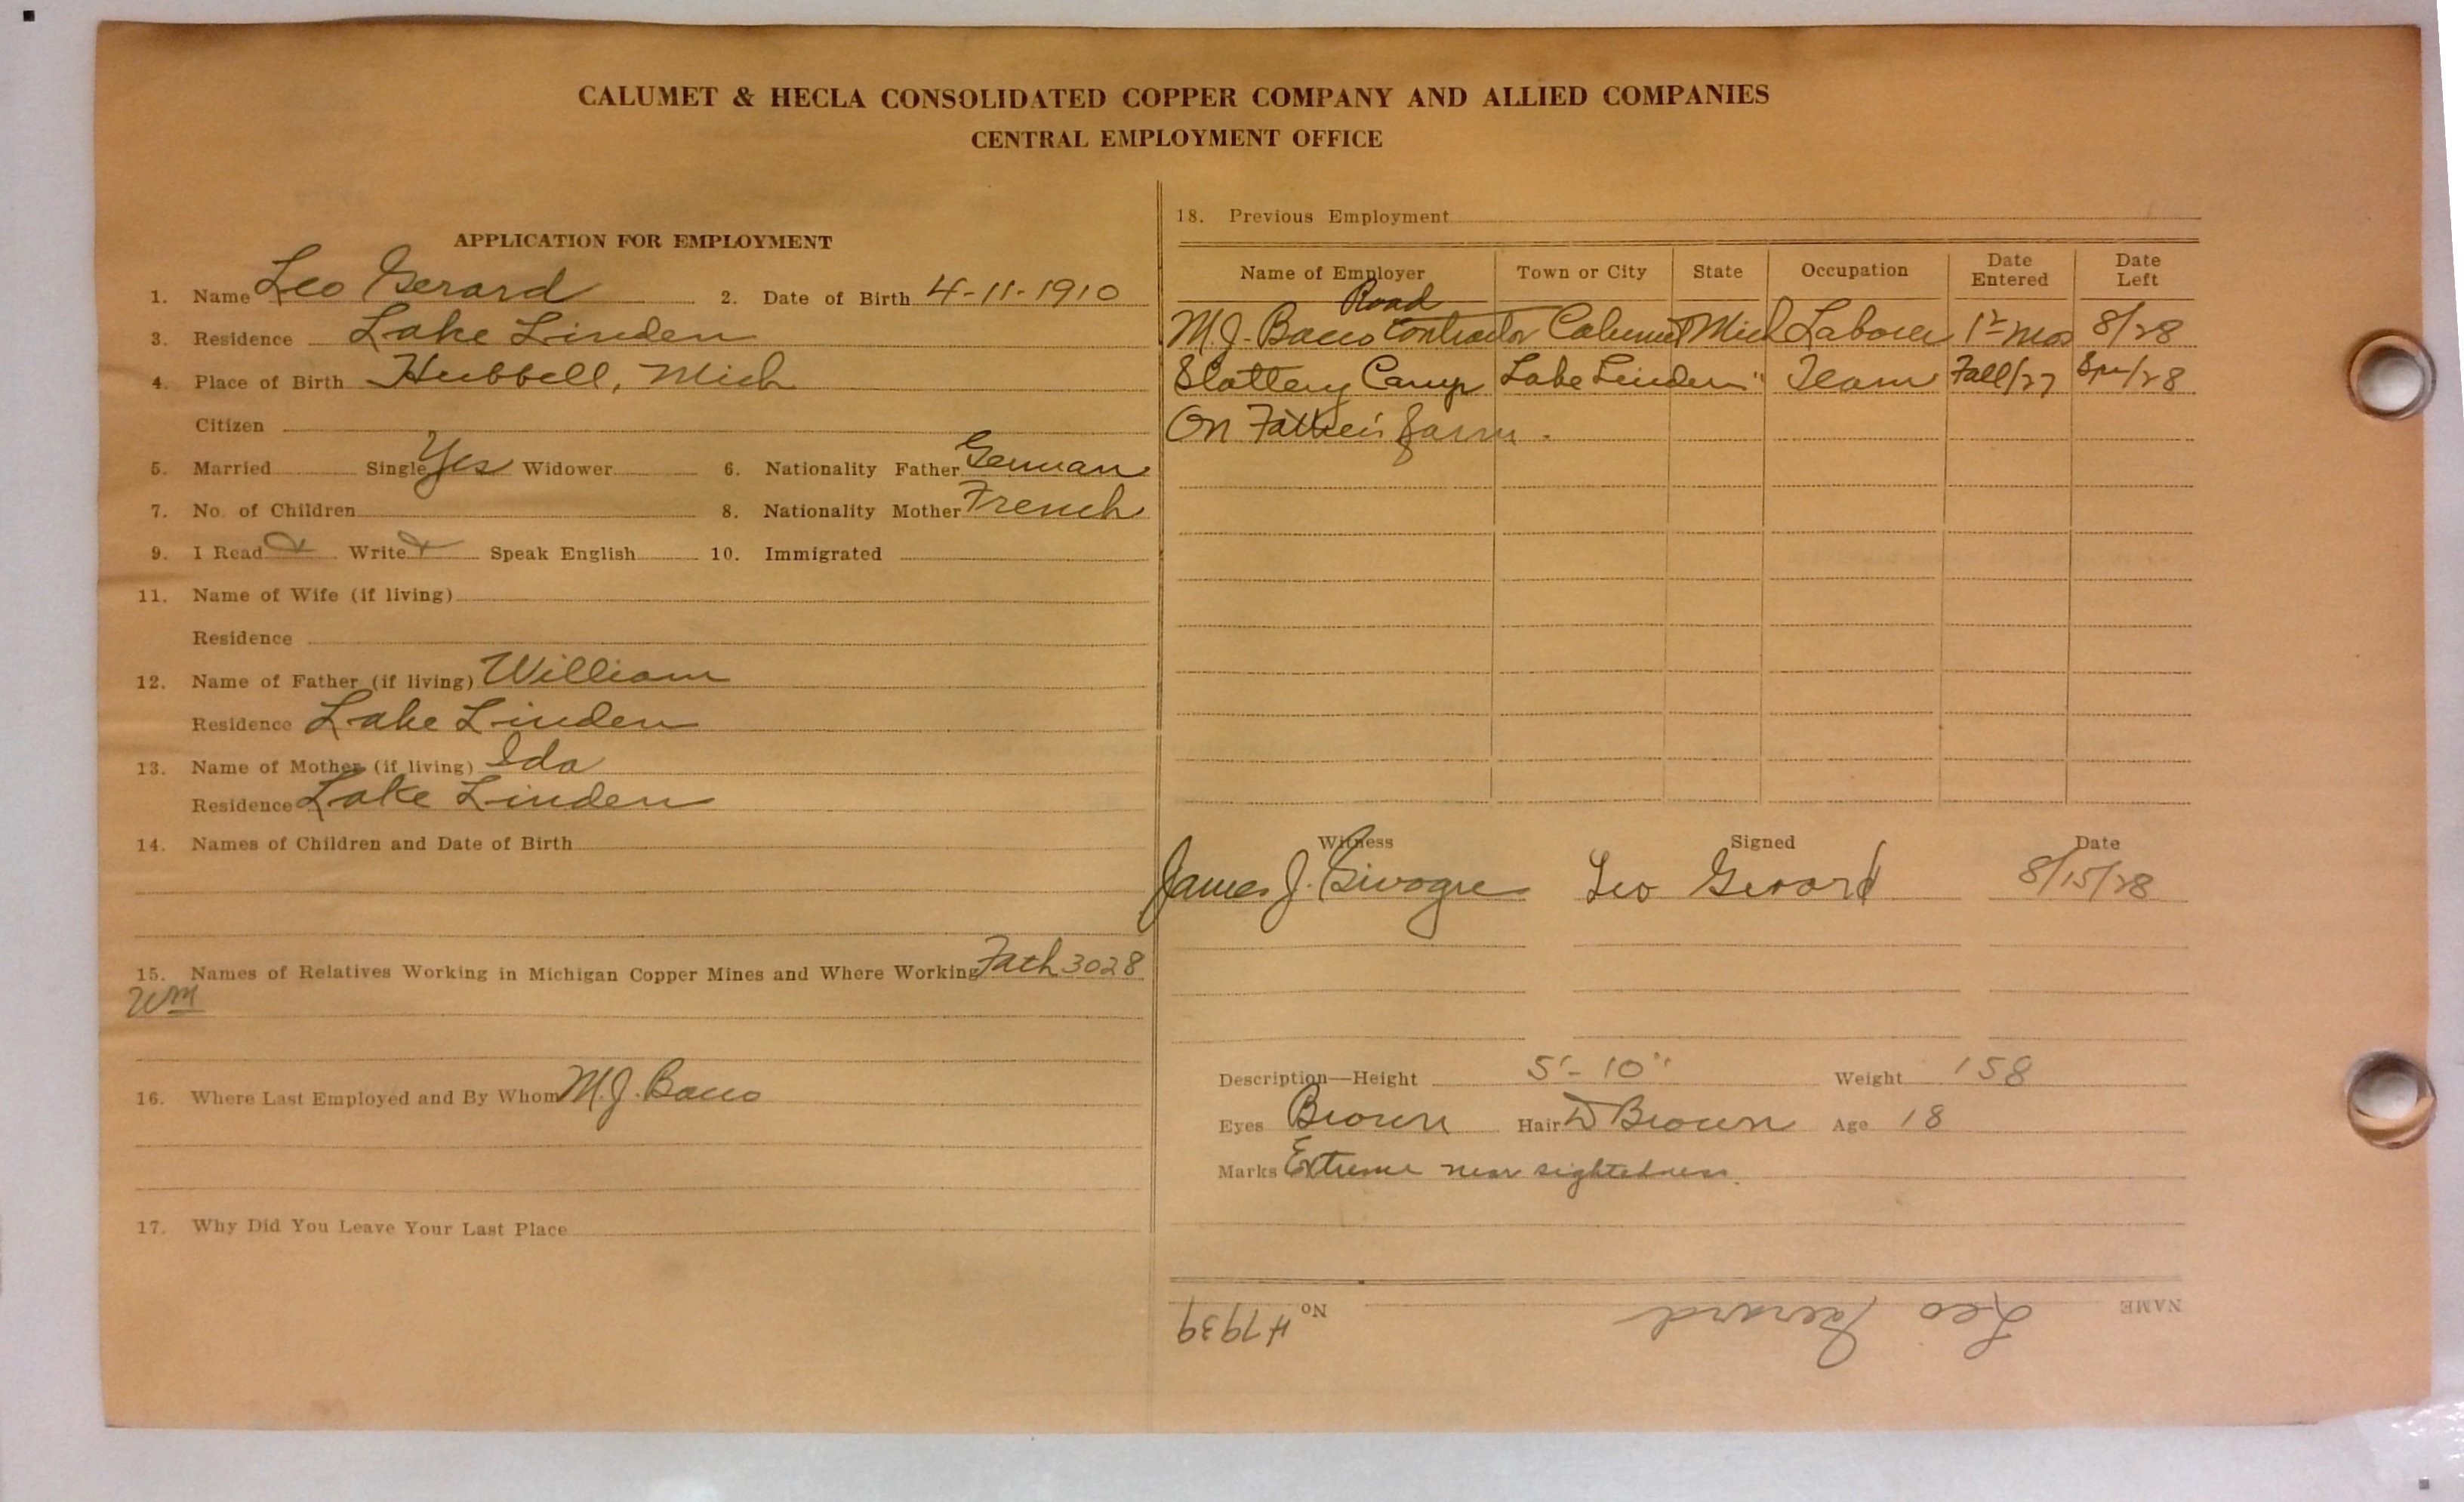 CALUMET & HECLA CONSOLIDATED COPPER COMPANY AND ALLIED COMPANIES
CENTRAL EMPLOYMENT OFFICE
APPLICATION FOR EMPLOYMENT
1. Name Leo Gerard 2. Date of Birth 4-11-1910
3. Residence Lake Linden
4. Place of Birth Hubbell, Mich
Citizen
5. Married Single Yes Widower 6. Nationality Father German
7. No. of Children 8. Nationality Mother French
9. I Read Write Speak English 10. Immigrated
11. Name of Wife (if living)
Residence
12. Name of Father (if living) William
Residence Lake Linden
13. Name of Mother (if living) Ida
Residence Lake Linden
14. Names of Children and Date of Birth
15. Names of Relatives Working in Michigan Copper Mines and Where Working Fath 3028
Wm
16. Where Last Employed and By Whom M.J. Bacco
17. Why Did You Leave Your Last Place
18. Previous Employment
Name of Employer Town or City State Occupation Date Entered Date Left
Road
M.J. Bacco Contractor Calumet Mich Laborer Mos 8/28
Slattery Camp Lake Linden " Team Fall/27 Spr/28
On Father's farm.
Witness Signed Date
James J. Leo Gerard 8/15/28
Description—Height 5'-10" Weight 158
Eyes Brown Hair D Brown Age 18
Marks Extreme near sightedness.
NAME Leo Gerard No #7939